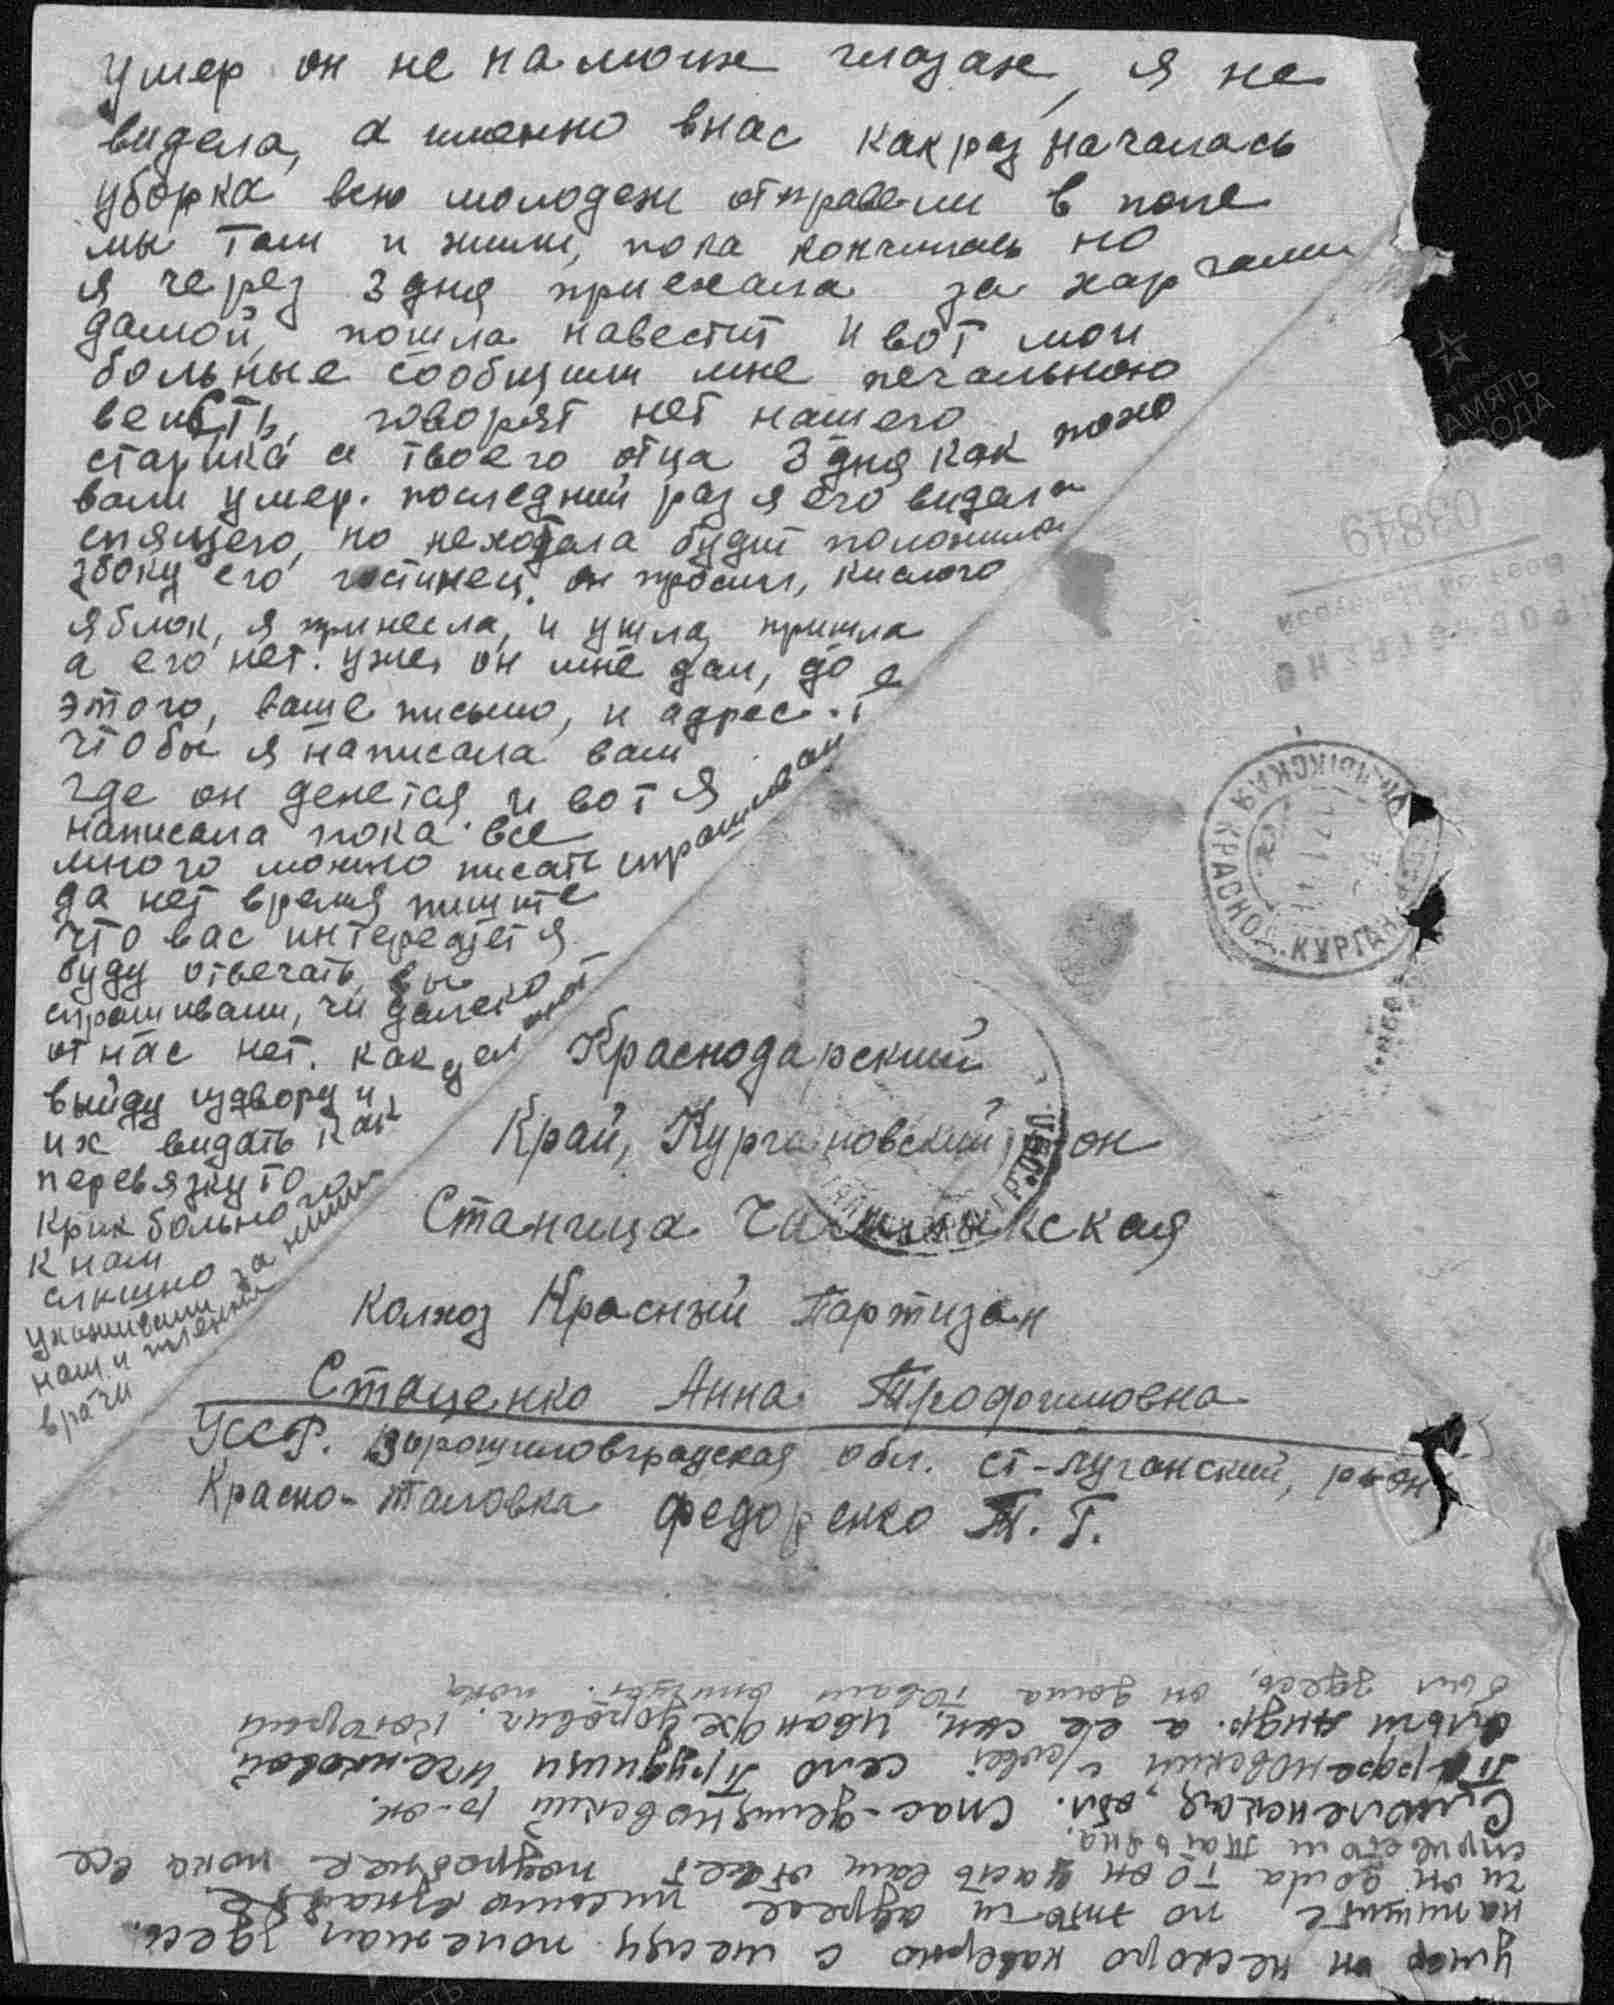 умер он не на моих глазах, я не
видела, а именно внас как раз началась
уборка всю молодеж отправели в поле
мы там и жили, пока кончилась но
я через 3 дня приехала за харчами
дамой, пошла навестит и вот мои
больные сообщили мне печальною
весть, говорят нет нашего
старика а твоего отца 3 дня как похо
вали умер. последний раз я его видела
спящего, но нехотела будит положила
збоку его гостинец. он просил, кислого
яблок, я принесла, и ушла, пришла
а его нет. уже он мне дал, до е
этого, ваше письмо, и адрес.
чтобы я написала вам
где он денется и вот я
написала пока все
много можно писать спрашивай
да нет время пишите
что вас интересуется
буду отвечать, вы
спрашивали, чи далеко
от нас нет. как
выйду издвору и
их видать как
перевязку то
крик больного
к нам
слышно за ними
ухаживали
наши пленни
врачи
Краснодарский
Край, Кургановский, р-он
Станица
Колхоз Красный Партизан
Стаценко Анна Трофимовна
УССР. Ворошиловградская обл. ст-Луганский, район
Красно-Таловка Федоренко Т. Г.
КРАСНО
КУРГАН
03849
умер он нескоро наверно с месяц полежал здесь.
напишите по этом адресе письмо
чи он дома то он даст вам ответ подробнее пока все
с приветом Татьяна.
Смоленская, обл. Спас-демяновский р-он.
село
а ее сын, Иван Федорович. который
был здесь, он дома